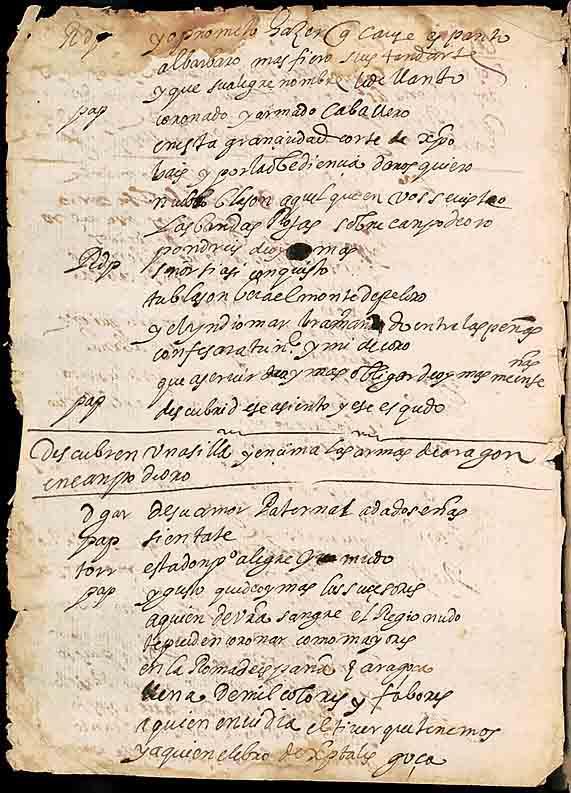 Rdp yo prometo hazer q cause espanto
al barbaro mas fiero su estandarte
y que su alegre nombre de llanto
pap coronado y armado caballero
en esta gran ciudad corte de xpo
bais y por la obediençia daros quiero
nuebo blason aquel que en vos se
las bandas Rojas sobre canpo de oro
pondreis de oy mas
Rdp conquisto
tu blason bera el monte
y el yndio mar bramando entre las peñas
confesara tu nº y mi decoro
que a seruir de oy mas obligar
pap descubrid ese asiento y ese esqudo
Descubren una silla y encima las armas de aragon
en canpo de oro
D gar de su amor Paternal a dado señas
pap sientate
torr estado npº alegre y mudo
pap y gusto que de oy mas los suçesores
a quien de vra sangre el Regio nudo
se pueden coronar como mayores
en la Roma de españa Zaragoça
llena de mil colores y fabores
a quien enuidia el tiuer que tenemos
y a quien el ebro de xptales goça